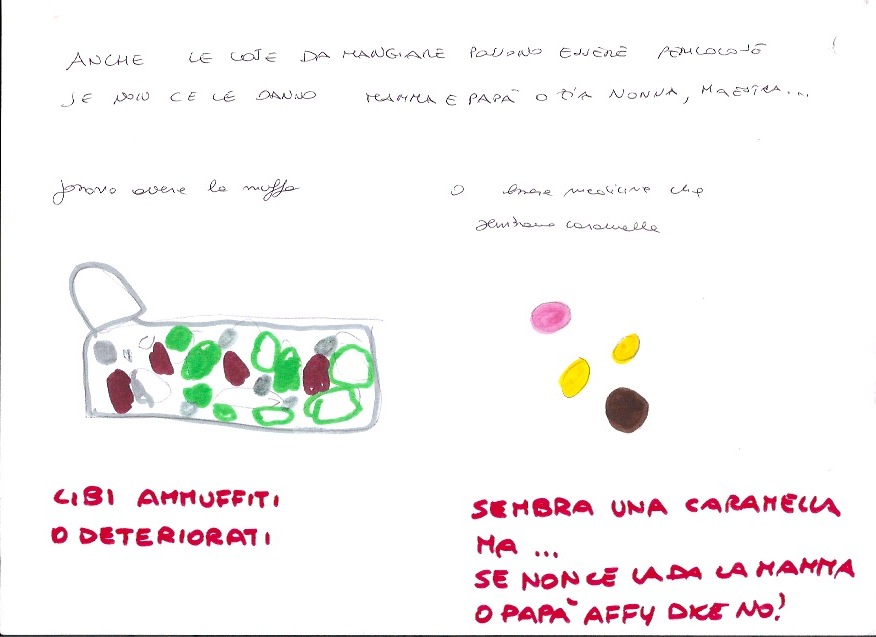 ANCHE LE COSE DA MANGIARE POSSONO ESSERE PERICOLOSE
SE NON CE LE DANNO MAMMA E PAPÀ O ZIA NONNA, MAESTRA...
possono avere la muffa
O essere medicine che
sembrano caramelle
CIBI AMMUFFITI
O DETERIORATI
SEMBRA UNA CARAMELLA
MA ...
SE NON CE LA DA LA MAMMA
O PAPÀ AFFY DICE NO!